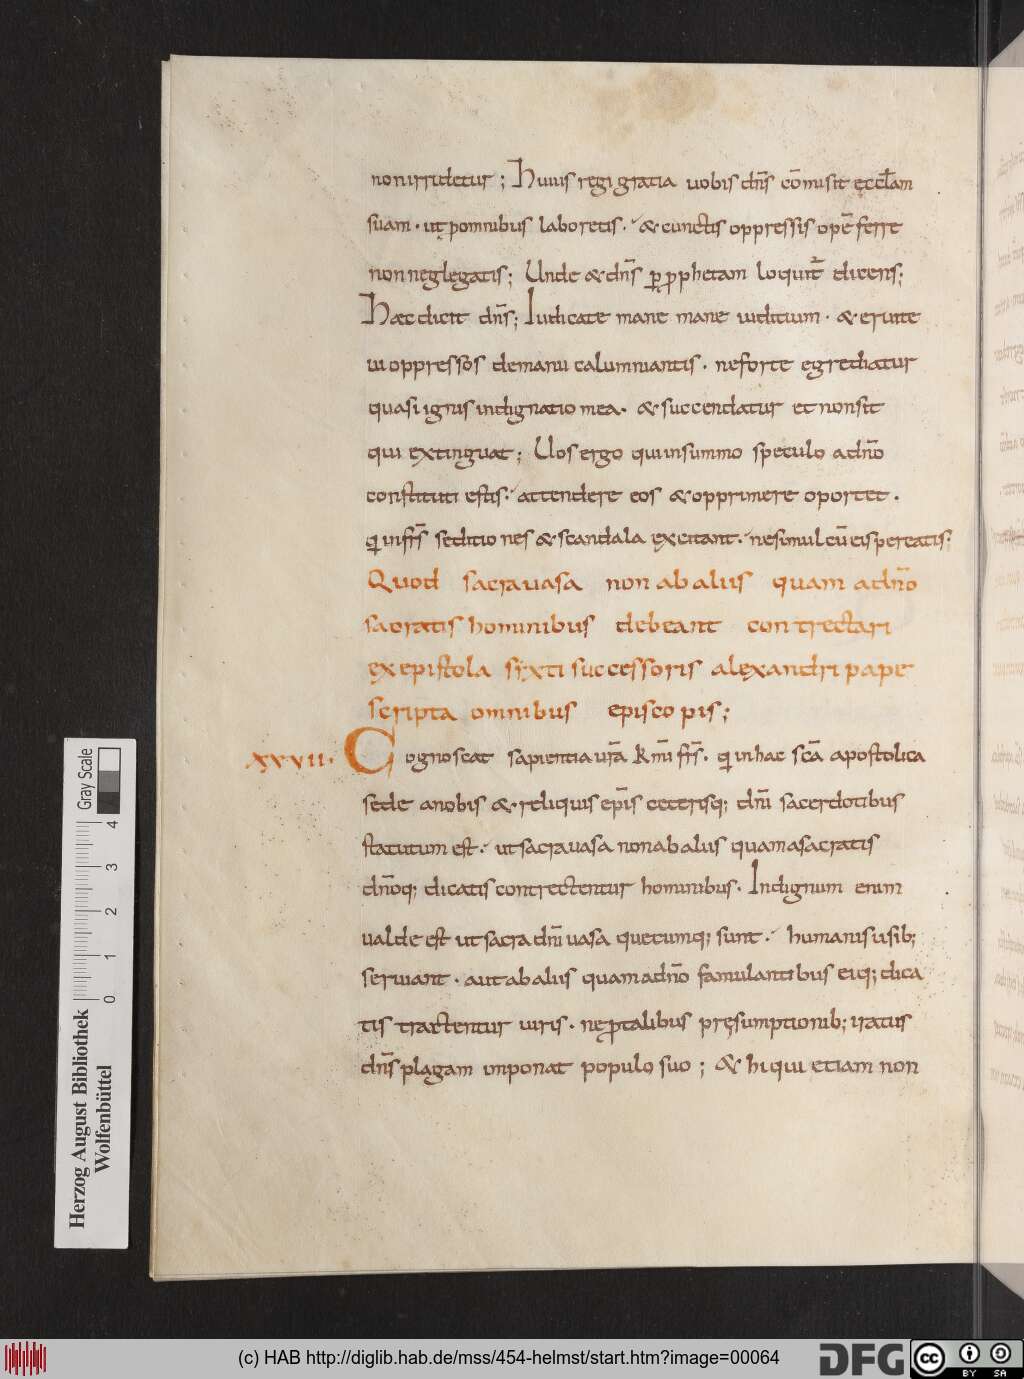 non irridetur ; Huius regi gratia uobis dn̄s cōmisit ęccl̄am
suam · ut p omnibus laboretis · & cunctis oppressis opē ferre
non neglegatis ; Unde & dn̄s ꝑ ꝓphetam loquit̄ dicens ;
Hæc dicit dn̄s ; Iudicate mane mane iudicium · & eruite
ui oppressos de manu calumniantis · ne forte egrediatur
quasi ignis indignatio mea · & succendatur et non sit
qui extinguat ; Uos ergo qui in summo speculo a dn̄o
constituti estis · attendere eos & opprimere oportet .
q̄ in fr̄s seditiones & scandala excitant · ne simul cū eis pereatis ;
Quod sacra uasa non ab aliis quam a dn̄o
sacratis hominibus debeant contrectari
ex epistola sixti successoris alexandri pape
scripta omnibus episcopis ;
XXVII · Cognoscat sapientia ur̄a km̄i fr̄s · q̄ in hac sc̄a apostolica
sede a nobis & reliquis ep̄is ceterisq; dn̄i sacerdotibus
statutum est · ut sacra uasa non ab aliis quam a sacratis
dn̄oq; dicatis contrectentur hominibus · Indignum enim
ualde est ut sacra dn̄i uasa quecumq; sunt · humanis usib;
seruiant · aut ab aliis quam a dn̄o famulantibus eiq; dica
tis tractentur uiris · ne ꝓ talibus pręsumptionib; iratus
dn̄s plagam imponat populo suo ; & hi qui etiam non
Gray Scale
4
3
2
1
0
Herzog August Bibliothek
Wolfenbüttel
(c) HAB http://diglib.hab.de/mss/454-helmst/start.htm?image=00064
DFG
cc
BY SA